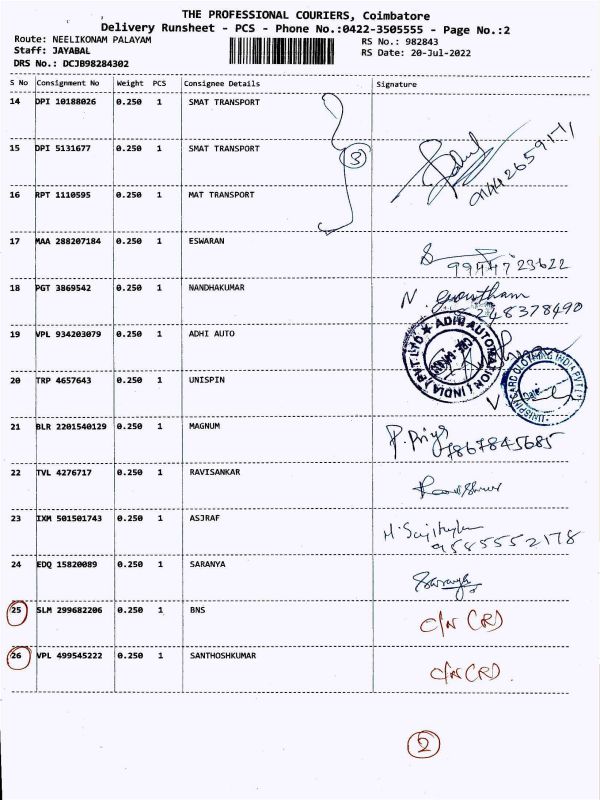 THE PROFESSIONAL COURIERS, Coimbatore
Delivery Runsheet - PCS - Phone No.:0422-3505555 - Page No.:2
Route: NEELIKONAM PALAYAM RS No.: 982843
Staff: JAYABAL RS Date: 20-Jul-2022
DRS No.: DCJB98284302
S No Consignment No Weight PCS Consignee Details Signature
14 DPI 10188026 0.250 1 SMAT TRANSPORT
15 DPI 5131677 0.250 1 SMAT TRANSPORT
3
16 RPT 1110595 0.250 1 MAT TRANSPORT
17 MAA 288207184 0.250 1 ESWARAN
9944723622
18 PGT 3869542 0.250 1 NANDHAKUMAR
N. Gowtham
248378490
19 VPL 934203079 0.250 1 ADHI AUTO
ADHI AUTOMATION (INDIA) PVT LTD
20 TRP 4657643 0.250 1 UNISPIN
UNISPIN CARD CLOTHING INDIA PVT LTD
Date
21 BLR 2201540129 0.250 1 MAGNUM
P. Priya
7867845685
22 TVL 4276717 0.250 1 RAVISANKAR
23 IXM 501501743 0.250 1 ASJRAF
9585552178
24 EDQ 15820089 0.250 1 SARANYA
Saranya
25 SLM 299682206 0.250 1 BNS C/N (R)
26 VPL 499545222 0.250 1 SANTHOSHKUMAR C/N (R)
2